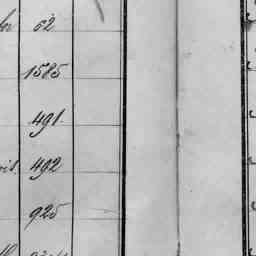 62
1585
491.
492
925